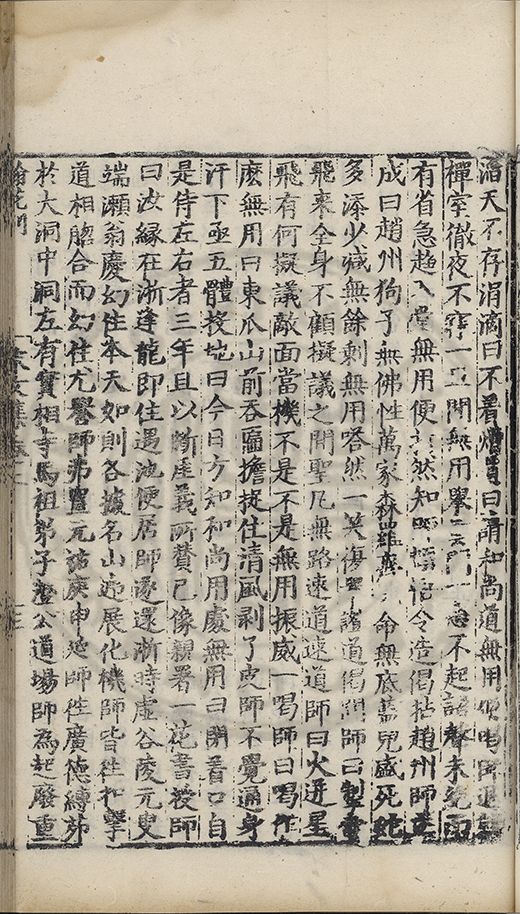 滔天不存涓滴曰不着煩曰請和尚道無用便喝師退
禪室徹夜不寐一旦聞無用舉雲門一念不起語聲未絕而
有省急趨入堂無用便然知師令造偈拈趙州師
成曰趙州狗子無佛性萬家森羅命無底蓋兒盛死蛇
多添少減無餘剩無用嗒然一笑復諸道偈師曰掣電
飛來全身不顧擬議之間聖凡無路速道速道師曰火迸星
飛有何擬議敵面當機不是不是無用振威一喝師曰喝作
麼無用曰東瓜山前吞匾擔捉住清風剥了皮師不覺通身
汗下亟五體投地曰今日方知和尚用處無用曰閉着口自
是侍左右者三年且以斷崖義所賛己像親署一花書授師
曰汝緣在浙逢龍即住遇池便居師遂還浙時虛谷陵元叟
端瀨翁慶幻住本天如則各據名山迎展化機師皆往扣擊
道相脗合而幻住尤譽師弗置元祐庚申延師往廣德縛茆
於大洞中洞左有寶相寺馬祖弟子澄公道場師為起廢重